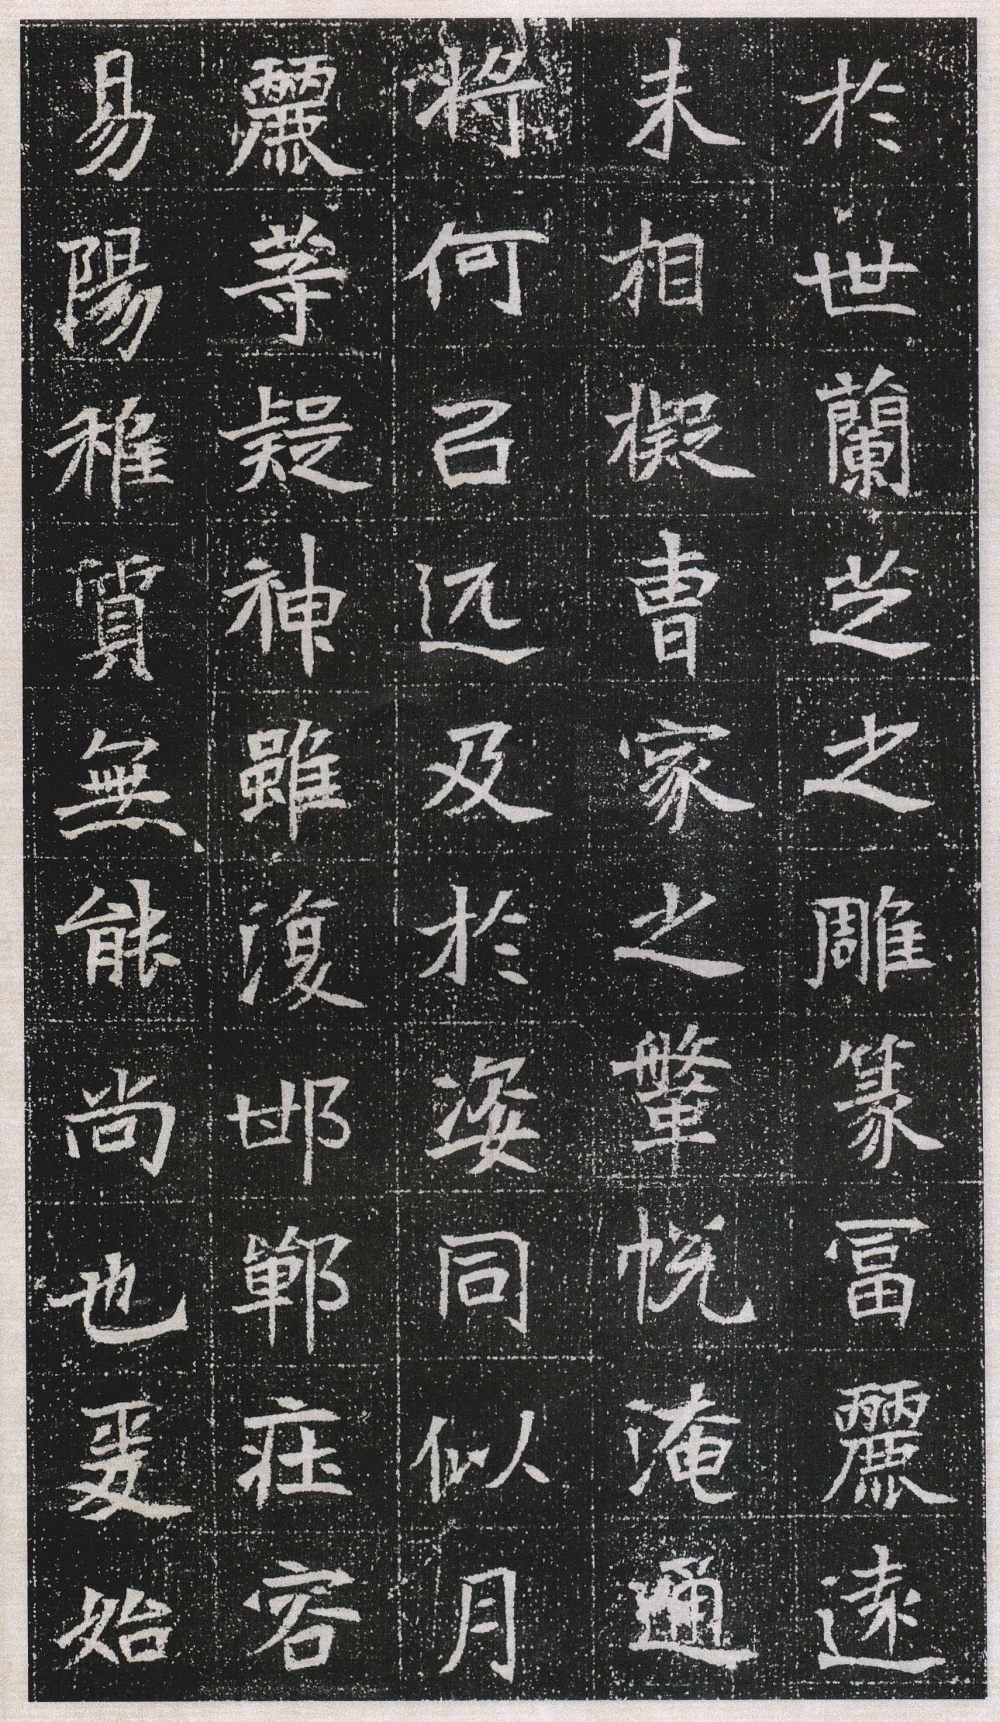 於世蘭芝之雕篆冨麗遠
未相擬曹家之鞶帨淹通
將何召远及於姿同似月
麗等疑神雖復邯鄲莊容
易陽稚質無能尚也爰始